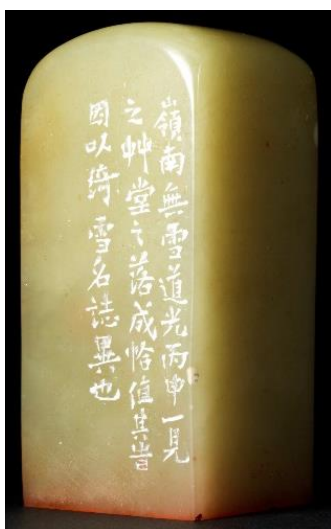 嶺南無雪道光丙申一見
之艸堂之落成恰值其旹
因以綺雪名誌異也